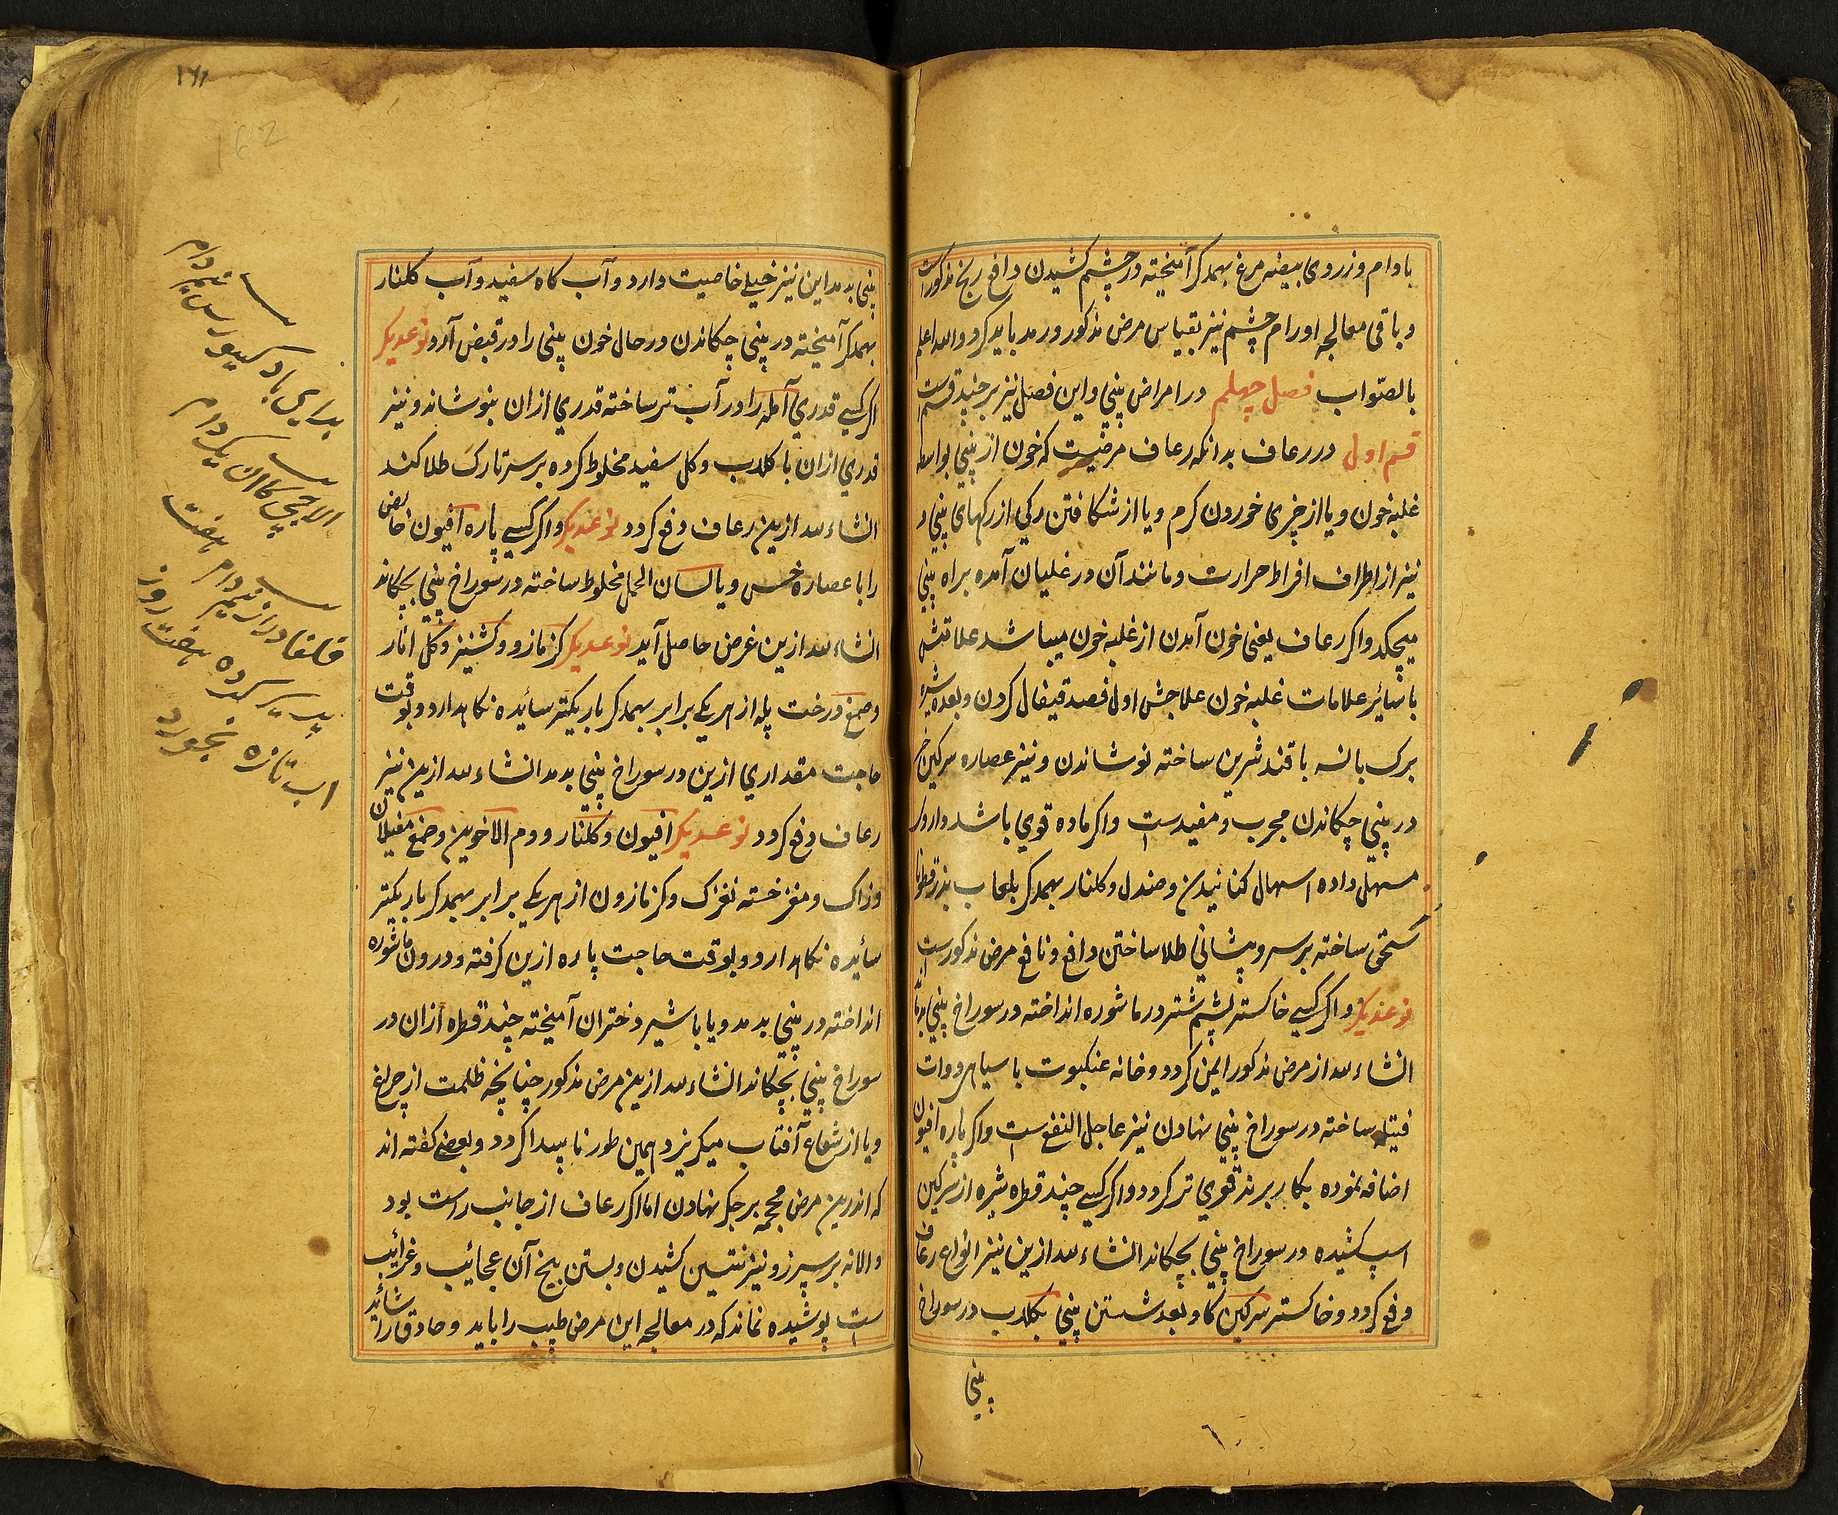 بادام و زردی بیضه مرغ بهمدکر آمیخته در چشم کشیدن دافع رنج مذکورست
و باقی معالجه اورام چشم نیز بقیاس مرض مذکور و رمد باید کرد والله اعلم
بالصّواب فصل چهلم در امراض بینی و این فصل نیز بر چند قسمست
قسم اول در رعاف بدانکه رعاف مرضیست که خون از بینی بواسطه
غلبه خون و یا از چیزی خوردن کرم و یا از شکافتن رکی از رکهای بینی و
نیز از اطراف افراط حرارت و مانند آن در غلیان آمده براه بینی
میچکد و اکر رعاف یعنی خون آمدن از غلبه خون میباشد علامتش
با سائر علامات غلبه خون علاجش اول فصد قیفال کردن و بعده شیره
برک بانسه با قند شرین ساخته نوشاندن و نیز عصاره سرکین خر
در بینی چکاندن مجرب و مفیدست و اکر ماده قوی باشد داروی
مسهل داده اسهال کنانیدن و صندل و کلنار بهمدکر بلعاب بذرقطونا
سحق ساخته بر سر و پیشانی طلا ساختن دافع و نافع مرض مذکورست
نوعدیکر و اکر کسی خاکستر پشم شتر در ماشوره انداخته در سوراخ بینی بدمد
انشاءلله از مرض مذکور ایمن کردد و خانه عنکبوت با سیاهی دوات
فتیله ساخته در سوراخ بینی نهادن نیز عاجل النفع است و اکر پاره افیون
اضافه نموده بکار برند قوی تر کردد و اکر کسی چند قطره شیره از سرکین
اسپ کشیده در سوراخ بینی بچکاند انشاءلله ازین نیز انواع رعاف
دفع کردد و خاکستر سرکین کاو بعد شستن بینی بکلاب در سوراخ
بینی
۱۶۱
162
بینی بدمد این نیز خیلی خاصیت دارد و آب کاه سفید و آب کلنار
بهمدکر آمیخته در بینی چکاندن در حال خون بینی را در قبض آرد نوعدیکر
اکر کسی قدری آمله را در آب تر ساخته قدری ازان بنوشاند و نیز
قدری ازان با کلاب و کل سفید مخلوط کرده بر سر تارک طلا کند
انشاءلله ازین رعاف دفع کردد نوعدیکر و اکر کسی پاره افیون خالص
را با عصاره خس و یا لسان الحمل مخلوط ساخته در سوراخ بینی بچکاند
انشاءلله ازین غرض حاصل آید نوعدیکر کزمازو و کشنیز و کل انار
و صمغ درخت پله از هر یکی برابر بهمدکر باریکتر سائیده نکاهدارد و بوقت
حاجت مقداری ازین در سوراخ بینی بدمد انشاءلله ازین نیز
رعاف دفع کردد نوعدیکر افیون و کلنار و دم الاخوین و صمغ مغیلان
و زاک و مغز خسته نغزک و کزمازون از هر یکی برابر بهمدکر باریکتر
سائیده نکاهدارد و بوقت حاجت پاره ازین کرفته و درون ماشوره
انداخته در بینی بدمد و یا با شیر دختران آمیخته چند قطره ازان در
سوراخ بینی بچکاند انشاءلله ازین مرض مذکور چنانچه ظلمت از چراغ
و یا از شعاع آفتاب میکریزد همین طور ناپیدا کردد و بعضی کفته اند
که اندرین مرض محجمه بر جکر نهادن اما اکر رعاف از جانب راست بود
والا نه بر سپرز و نیز کشیدن و بستن بیخ آن عجائب و غرائب
است پوشیده نماند که در معالجه این مرض طبیب را باید و حاذق را شاید
برای باد
الاچی یک دام
دام هفت
کرده هفت روز
اب تازه بخورد